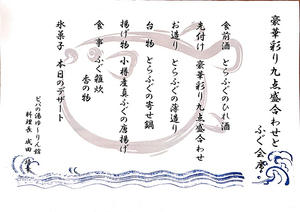 豪華彩り九点盛合わせと
ふぐ会席。
食前酒 とらふぐのひれ酒
先付け 豪華彩り九点盛合わせ
お造り とらふぐの薄造り
台物 とらふぐの寄せ鍋
揚げ物 小樽産真ふぐの唐揚げ
食事 ふぐ雑炊
香の物
氷菓子 本日のデザート
料理長 成田